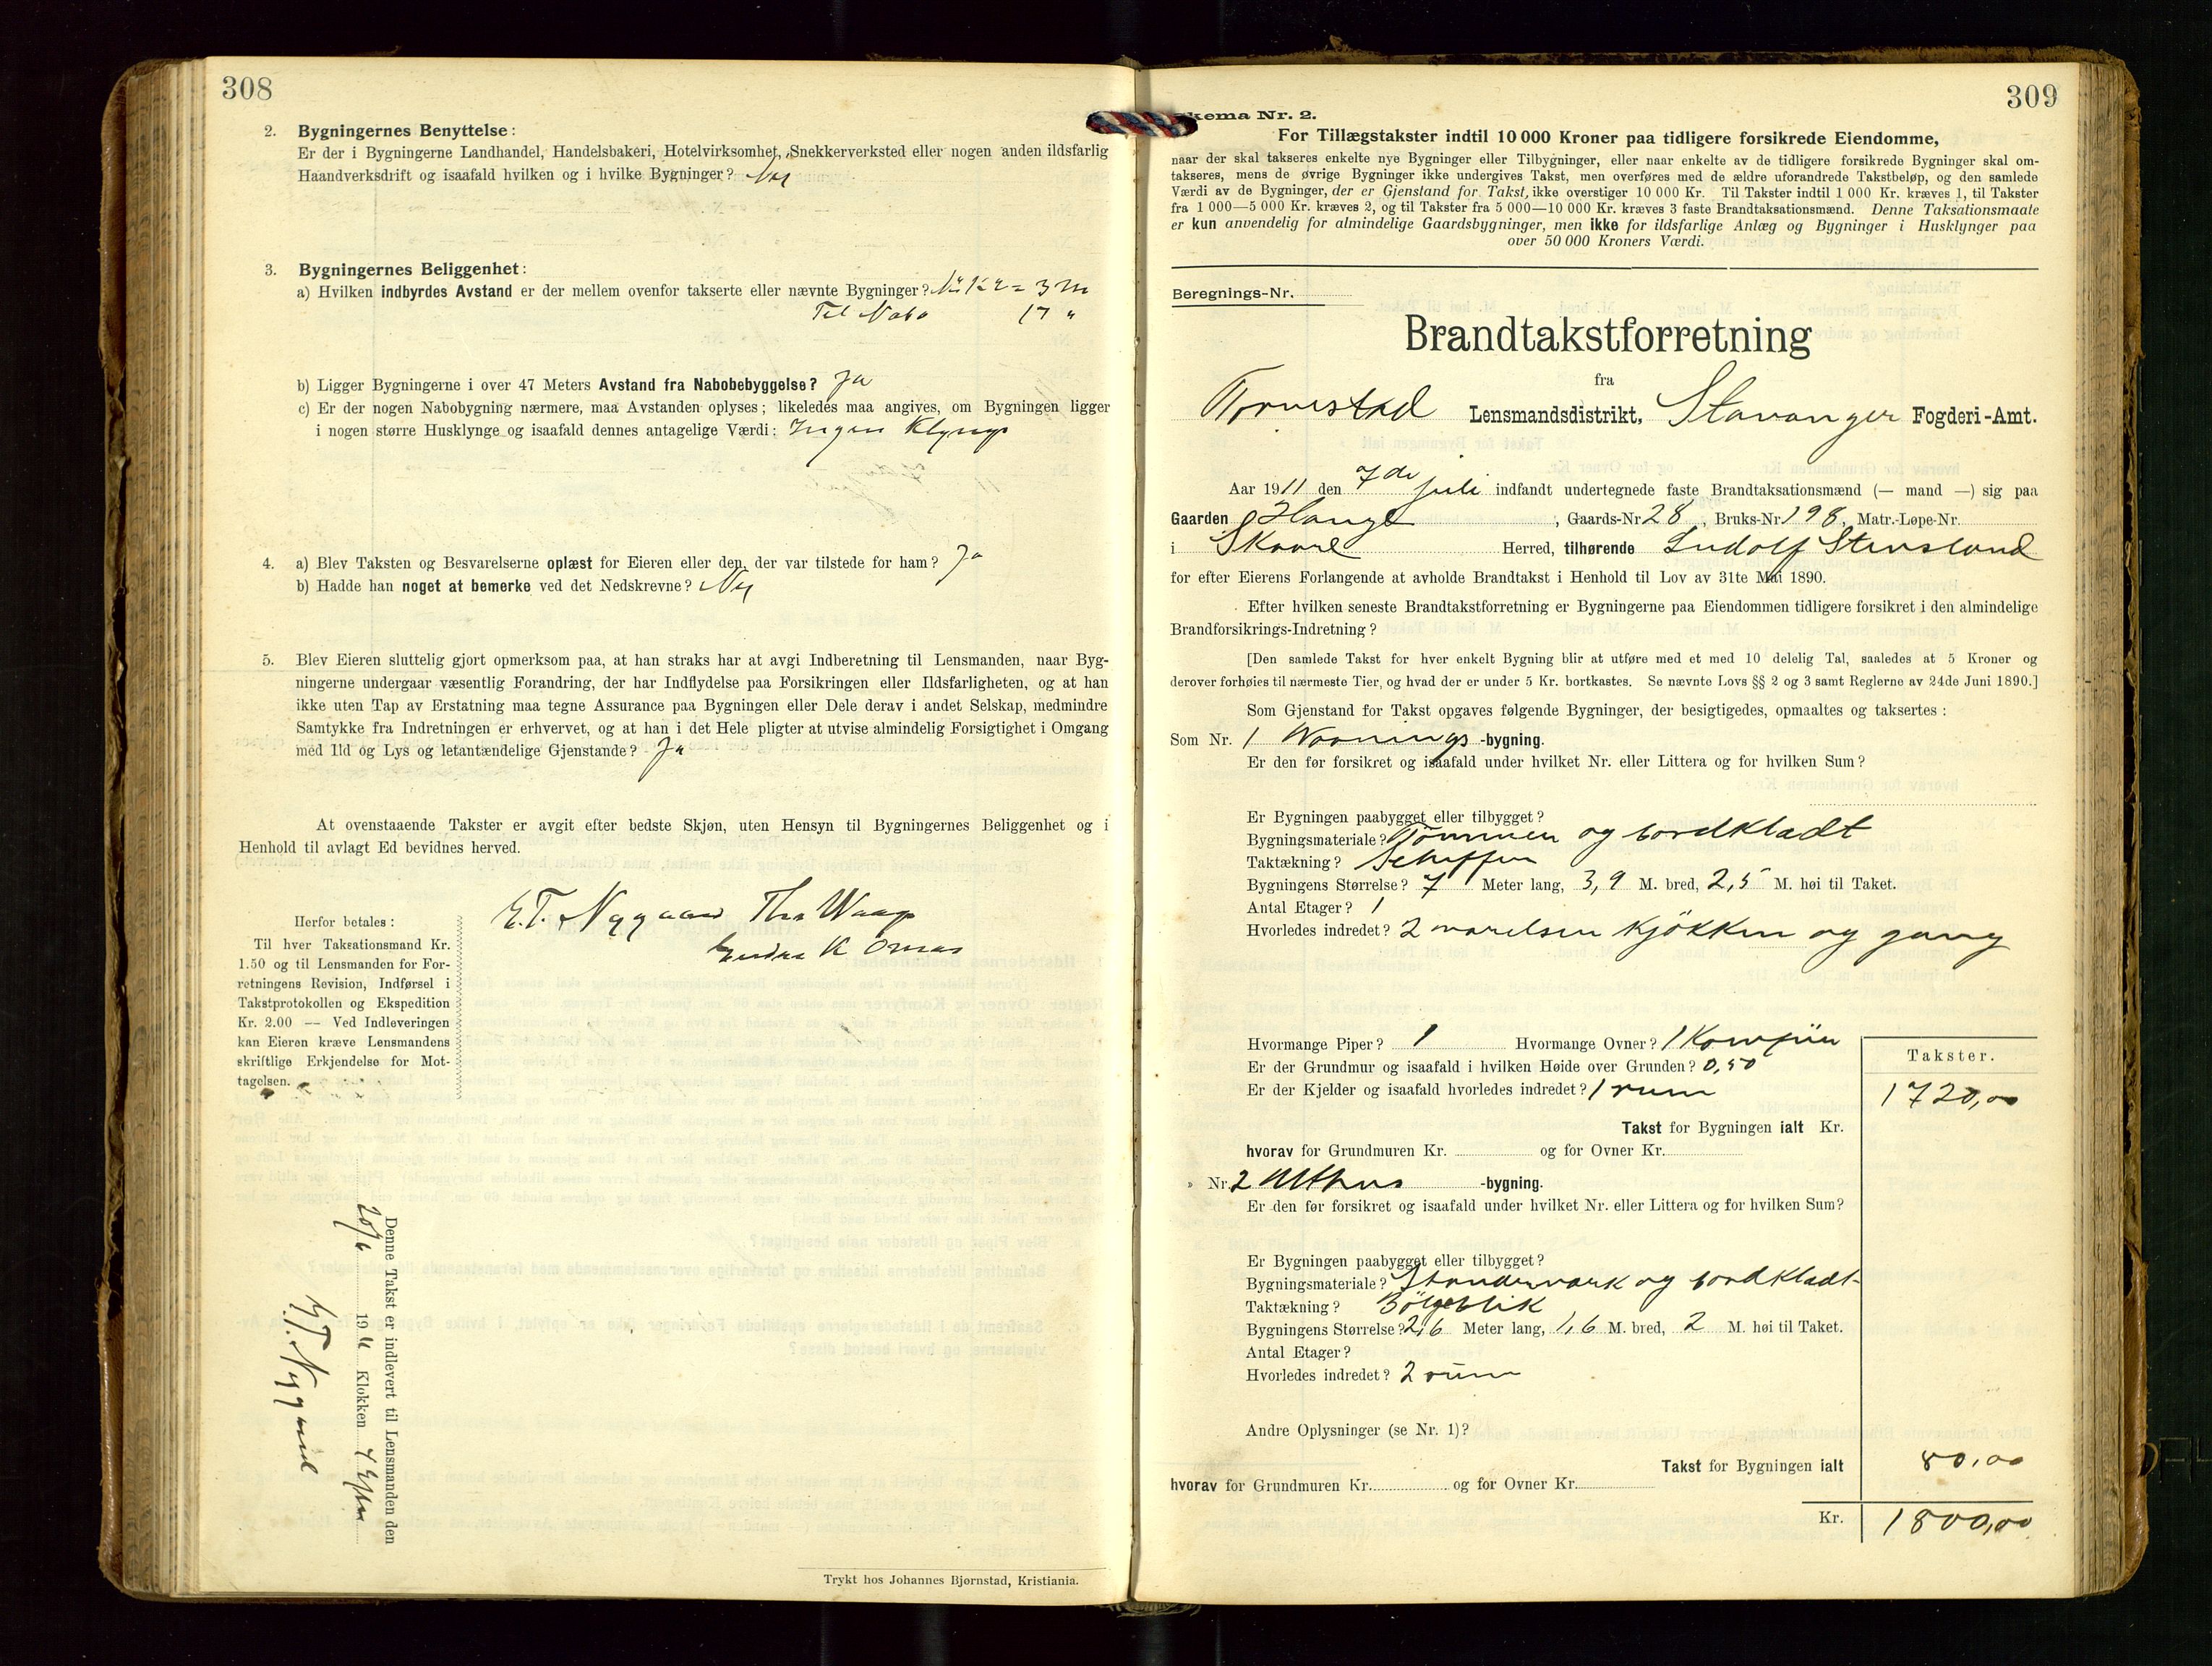 308
2. Bygningernes Benyttelse:
Er der i Bygningerne Landhandel, Handelsbakeri, Hotelvirksomhet, Snekkerverksted eller nogen anden ildsfarlig
Haandverksdrift og isaafald hvilken og i hvilke Bygninger? Nei
3. Bygningernes Beliggenhet:
a) Hvilken indbyrdes Avstand er der mellem ovenfor takserte eller nævnte Bygninger? 3 m
Til Nabo 17 "
b) Ligger Bygningerne i over 47 Meters Avstand fra Nabobebyggelse? Ja
c) Er der nogen Nabobygning nærmere, maa Avstanden oplyses; likeledes maa angives, om Bygningen ligger
i nogen større Husklynge og isaafald dennes antagelige Værdi: Ingen Klynge
4. a) Blev Taksten og Besvarelserne oplæst for Eieren eller den, der var tilstede for ham? Ja
b) Hadde han noget at bemerke ved det Nedskrevne? Nei
5. Blev Eieren sluttelig gjort opmerksom paa, at han straks har at avgi Indberetning til Lensmanden, naar Byg-
ningerne undergaar væsentlig Forandring, der har Indflydelse paa Forsikringen eller Ildsfarligheten, og at han
ikke uten Tap av Erstatning maa tegne Assurance paa Bygningen eller Dele derav i andet Selskap, medmindre
Samtykke fra Indretningen er erhvervet, og at han i det Hele pligter at utvise almindelig Forsigtighet i Omgang
med Ild og Lys og letantændelige Gjenstande? Ja
At ovenstaaende Takster er avgit efter bedste Skjøn, uten Hensyn til Bygningernes Beliggenhet og i
Henhold til avlagt Ed bevidnes herved.
E.T. Nygaard
Herfor betales:
Til hver Taksationsmand Kr.
1.50 og til Lensmanden for For-
retningens Revision, Indførsel i
Takstprotokollen og Ekspedition
Kr. 2.00 — Ved Indleveringen
kan Eieren kræve Lensmandens
skriftlige Erkjendelse for Mot-
tagelsen.
Denne Takst er indlevert til Lensmanden den
1911 Klokken 4
E.T. Nygaard
Trykt hos Johannes Bjørnstad, Kristiania.
309
kema Nr. 2.
For Tillægstakster indtil 10 000 Kroner paa tidligere forsikrede Eiendomme,
naar der skal takseres enkelte nye Bygninger eller Tilbygninger, eller naar enkelte av de tidligere forsikrede Bygninger skal om-
takseres, mens de øvrige Bygninger ikke undergives Takst, men overføres med de ældre uforandrede Takstbeløp, og den samlede
Værdi av de Bygninger, der er Gjenstand for Takst, ikke overstiger 10 000 Kr. Til Takster indtil 1 000 Kr. kræves 1, til Takster
fra 1 000—5 000 Kr. kræves 2, og til Takster fra 5 000—10 000 Kr. kræves 3 faste Brandtaksationsmænd. Denne Taksationsmaate
er kun anvendelig for almindelige Gaardsbygninger, men ikke for ildsfarlige Anlæg og Bygninger i Husklynger paa
over 50 000 Kroners Værdi.
Beregnings-Nr.
Brandtakstforretning
fra
Torvestad Lensmandsdistrikt, Stavanger Fogderi-Amt.
Aar 1911 den 7de juli indfandt undertegnede faste Brandtaksationsmænd (— mand —) sig paa
Gaarden Hauge, Gaards-Nr 28, Bruks-Nr. 198, Matr.-Løpe-Nr.
i Skaare Herred, tilhørende Ludolf Stensland
for efter Eierens Forlangende at avholde Brandtakst i Henhold til Lov av 31te Mai 1890.
Efter hvilken seneste Brandtakstforretning er Bygningerne paa Eiendommen tidligere forsikret i den almindelige
Brandforsikrings-Indretning?
[Den samlede Takst for hver enkelt Bygning blir at utføre med et med 10 delelig Tal, saaledes at 5 Kroner og
derover forhøies til nærmeste Tier, og hvad der er under 5 Kr. bortkastes. Se nævnte Lovs §§ 2 og 3 samt Reglerne av 24de Juni 1890.]
Som Gjenstand for Takst opgaves følgende Bygninger, der besigtigedes, opmaaltes og taksertes:
Som Nr. 1 Vaanings-bygning.
Er den før forsikret og isaafald under hvilket Nr. eller Littera og for hvilken Sum?
Er Bygningen paabygget eller tilbygget?
Bygningsmateriale? Tømmer og bordklædt
Taktækning? Schiffer
Bygningens Størrelse? 7 Meter lang, 3,9 M. bred, 2,5 M. høi til Taket.
Antal Etager? 1
Hvorledes indredet? 2 værelsen kjökken og gang
Hvormange Piper? 1 Hvormange Ovner? 1 Komfür
Er der Grundmur og isaafald i hvilken Høide over Grunden? 0,50
Er der Kjelder og isaafald hvorledes indredet? 1 rum
Takster.
1720,00
Takst for Bygningen ialt Kr.
hvorav for Grundmuren Kr. og for Ovner Kr.
» Nr. 2 Uthus -bygning.
Er den før forsikret og isaafald under hvilket Nr. eller Littera og for hvilken Sum?
Er Bygningen paabygget eller tilbygget?
Bygningsmateriale? Standerværk og bordklædt
Taktækning? Bölgeblik
Bygningens Størrelse? 2,6 Meter lang, 1,6 M. bred, 2 M. høi til Taket.
Antal Etager?
Hvorledes indredet? 2 rum
Andre Oplysninger (se Nr. 1)?
Takst for Bygningen ialt 80,00
hvorav for Grundmuren Kr. og for Ovner Kr.
Kr. 1800,00